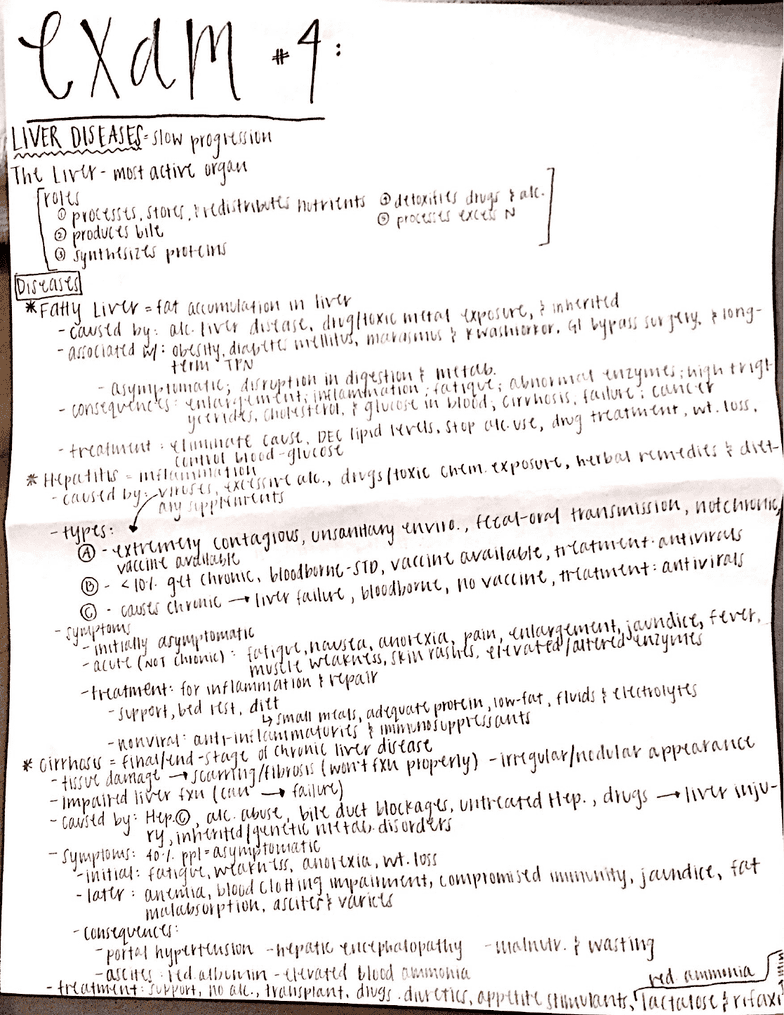 EXAM #4:
LIVER DISEASES = slow progression
The Liver - most active organ
roles
① processes, stores, & redistributes nutrients ④ detoxifies drugs & alc.
② produces bile ⑤ processes excess N
③ synthesizes proteins
Diseases
* Fatty Liver = fat accumulation in liver
- caused by: alc. liver disease, drug/toxic metal exposure, & inherited
- associated w/: obesity, diabetes mellitus, marasmus & kwashiorkor, GI bypass surgery, & long-
term TPN
- asymptomatic; disruption in digestion & metab.
- consequences: enlargement; inflammation; fatigue; abnormal enzymes; high trigl-
ycerides, cholesterol, & glucose in blood; cirrhosis, failure; cancer
- treatment: eliminate cause, DEC lipid levels, stop alc. use, drug treatment, wt. loss,
control blood-glucose
* Hepatitis = inflammation
- caused by: viruses, excessive alc., drugs/toxic chem. exposure, herbal remedies & diet-
ary supplements
- types:
Ⓐ - extremely contagious, unsanitary enviro., fecal-oral transmission, not chronic,
vaccine available
Ⓑ - <10% get chronic, bloodborne-STD, vaccine available, treatment: antivirals
Ⓒ - causes chronic → liver failure, bloodborne, no vaccine, treatment: antivirals
- symptoms
- initially asymptomatic
- acute (not chronic): fatigue, nausea, anorexia, pain, enlargement, jaundice, fever,
muscle weakness, skin rashes, elevated/altered enzymes
- treatment: for inflammation & repair
- support, bed rest, diet
↳ small meals, adequate protein, low-fat, fluids & electrolytes
- nonviral: anti-inflammatories & immunosuppressants
* Cirrhosis = final/end-stage of chronic liver disease
- tissue damage → scarring/fibrosis (won't fxn properly) - irregular/nodular appearance
- impaired liver fxn (can → failure)
- caused by: Hep. Ⓒ, alc. abuse, bile duct blockages, untreated Hep., drugs → liver inju-
ry, inherited/genetic metab. disorders
- symptoms: 40% ppl = asymptomatic
- initial: fatigue, weakness, anorexia, wt. loss
- later: anemia, blood clotting impairment, compromised immunity, jaundice, fat
malabsorption, ascites & varices
- consequences:
- portal hypertension - hepatic encephalopathy - malnutr. & wasting
- ascites: red. albumin - elevated blood ammonia
red. ammonia
- treatment: support, no alc., transplant, drugs: diuretics, appetite stimulants, lactalose & rifaxi